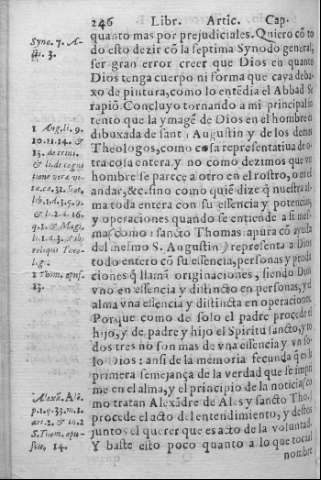 246 Libr. Artic. Cap.
quanto mas por prejudiciales. Quiero cō to
do esto dezir cō la septima Synodo general,
ser gran error creer que Dios en quanto
Dios tenga cuerpo ni forma que caya deba-
xo de pintura, como lo entēdia el Abbad Se
rapiō. Concluyo tornando a mi principal in
tento que la ymagē de Dios en el hombre es
dibuxada de sant Augustin y de los demas
Theologos, como cosa representatiua de o-
tra cosa entera. y no como dezimos que vn
hombre se parece a otro en el rostro, o en el
andar, &c. sino como quiē dize q̄ nuestra al-
ma toda entera con su essencia y potencias,
y operaciones quando se entiende a si mes-
ma, como sancto Thomas apura cō ayuda
del mesmo S. Augustin, representa a Dios
todo entero cō su essencia, personas y produ
ciones q̄ llamā originaciones, siendo Dios
vno en essencia y distincto en personas, y el
alma vna essencia y distincta en operaciones.
Porque como de solo el padre procede el
hijo, y de padre y hijo el Spiritu sancto, y to
dos tres no son mas de vna essencia y vn so-
lo Dios: ansi de la memoria fecunda q̄ es la
primera semejança de la verdad que se impri
me en el alma, y el principio de la noticia, co
mo tratan Alexādre de Ales y sancto Tho.
procede el acto del entendimiento, y destos
juntos el querer que es acto de la voluntad.
Y baste esto poco quanto a lo que toca al
nombre
Syno. 7. A-
ct. 3.
1 Aug. li. 9.
10. 11. 14. &
15. de trini.
lib. 1. d. 3. q. 9.
& li. 2. d. 16.
1 Thom. opus.
13.
Alexā. Ale.
p. 1. q. 33. m. 1.
art. 2. & m. 2
S. Thom. opu-
scu. 14.